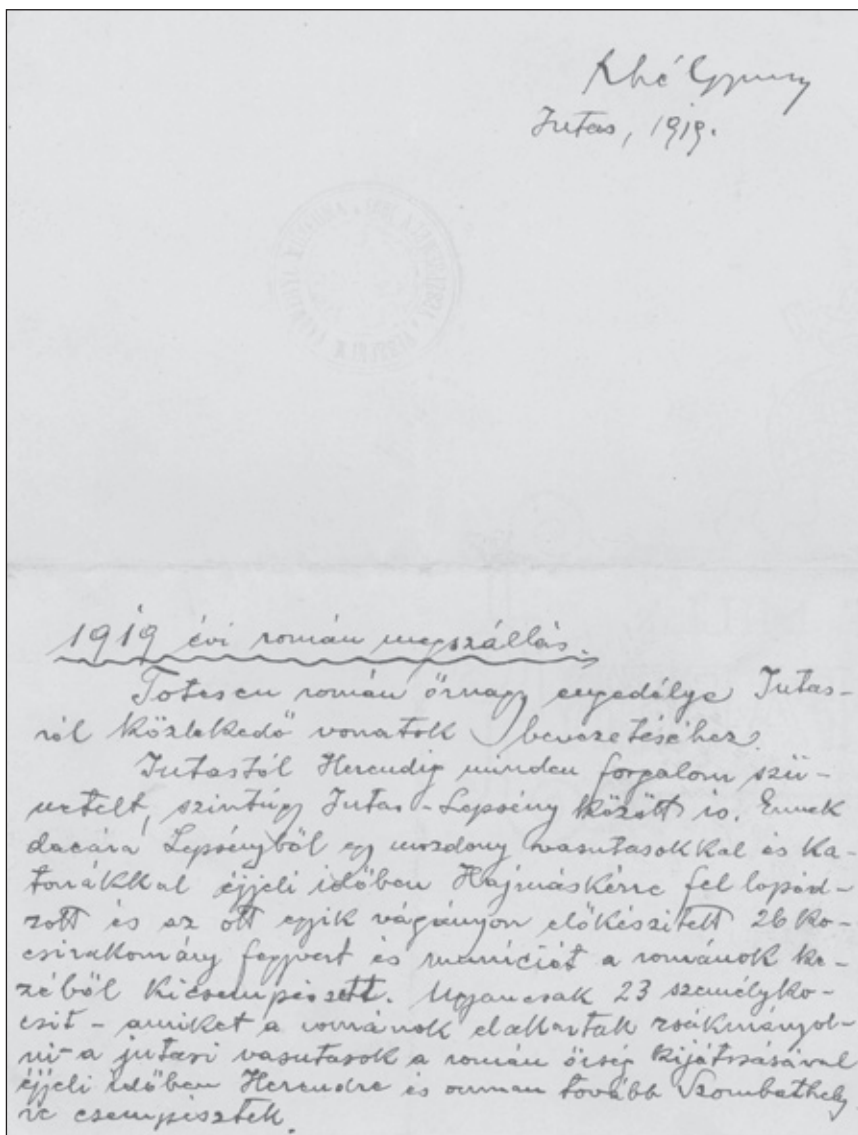 Jutas, 1919.
1919 évi román megszállás.
Totescu román őrnagy engedélye Jutas-
ról közlekedő vonatok bevezetéséhez.
Jutastól Herendig minden forgalom szü-
netelt, szintúgy Jutas-Lepsény között is. Ennek
dacára Lepsényből egy mozdony vasutasokkal és ka-
tonákkal éjjeli időben Hajmáskérre fellopód-
zott és az ott egyik vágányon előkészített 26 ko-
csirakomány fegyvert és muníciót a románok ke-
zéből kicsempészett. Ugyancsak 23 személyko-
csit - amiket a románok el akartak zsákmányol-
ni - a jutasi vasutasok a román őrség kijátszásával
éjjeli időben Herendre és onnan tovább Szombathely-
re csempésztek.